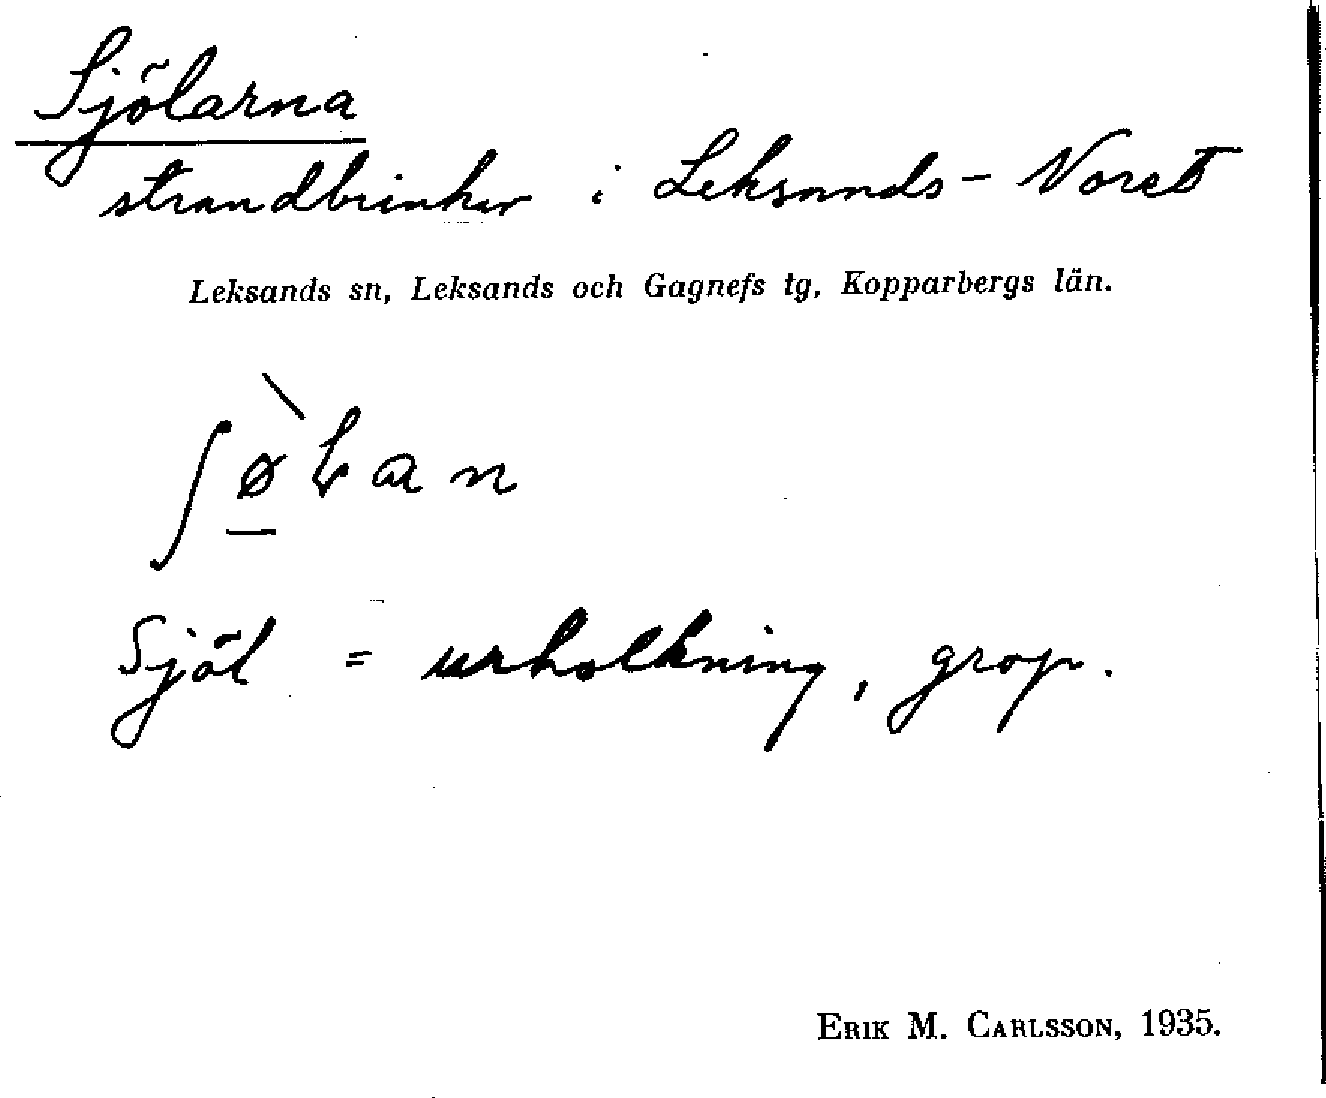 Sjölarna
strandbrinkar i Leksands-Noret
Leksands sn, Leksands och Gagnefs tg, Kopparbergs län.
ʃø̱̀ɫan
Sjöl = urholkning, grop.
ERIK M. CARLSSON, 1935.